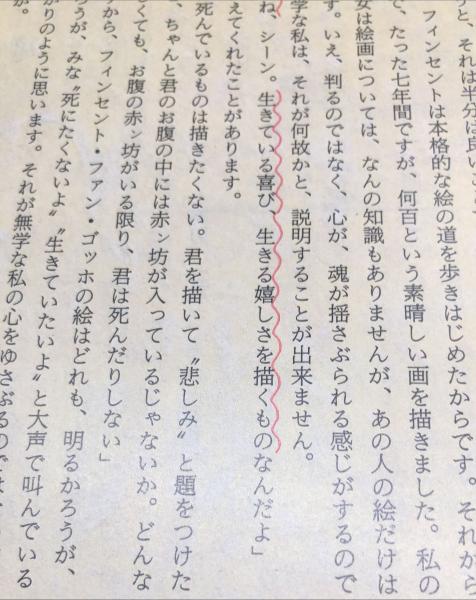 うと、それは半分は良い
フィンセントは本格的な絵の道を歩きはじめたからです。それから
で、たった七年間ですが、何百という素晴しい画を描きました。私の
女は絵画については、なんの知識もありませんが、あの人の絵だけは
す。いえ、判るのではなく、心が、魂が揺さぶられる感じがするので
学な私は、それが何故かと、説明することが出来ません。
ね、シーン。生きている喜び、生きる嬉しさを描くものなんだよ」
えてくれたことがあります。
死んでいるものは描きたくない。君を描いて〝悲しみ〟と題をつけた
、ちゃんと君のお腹の中には赤ン坊が入っているじゃないか。どんな
くても、お腹の赤ン坊がいる限り、君は死んだりしない」
から、フィンセント・ファン・ゴッホの絵はどれも、明るかろうが、
ろうが、みな〝死にたくないよ〟〝生きていたいよ〟と大声で叫んでいる
がりのように思います。それが無学な私の心をゆさぶるのでは
か。